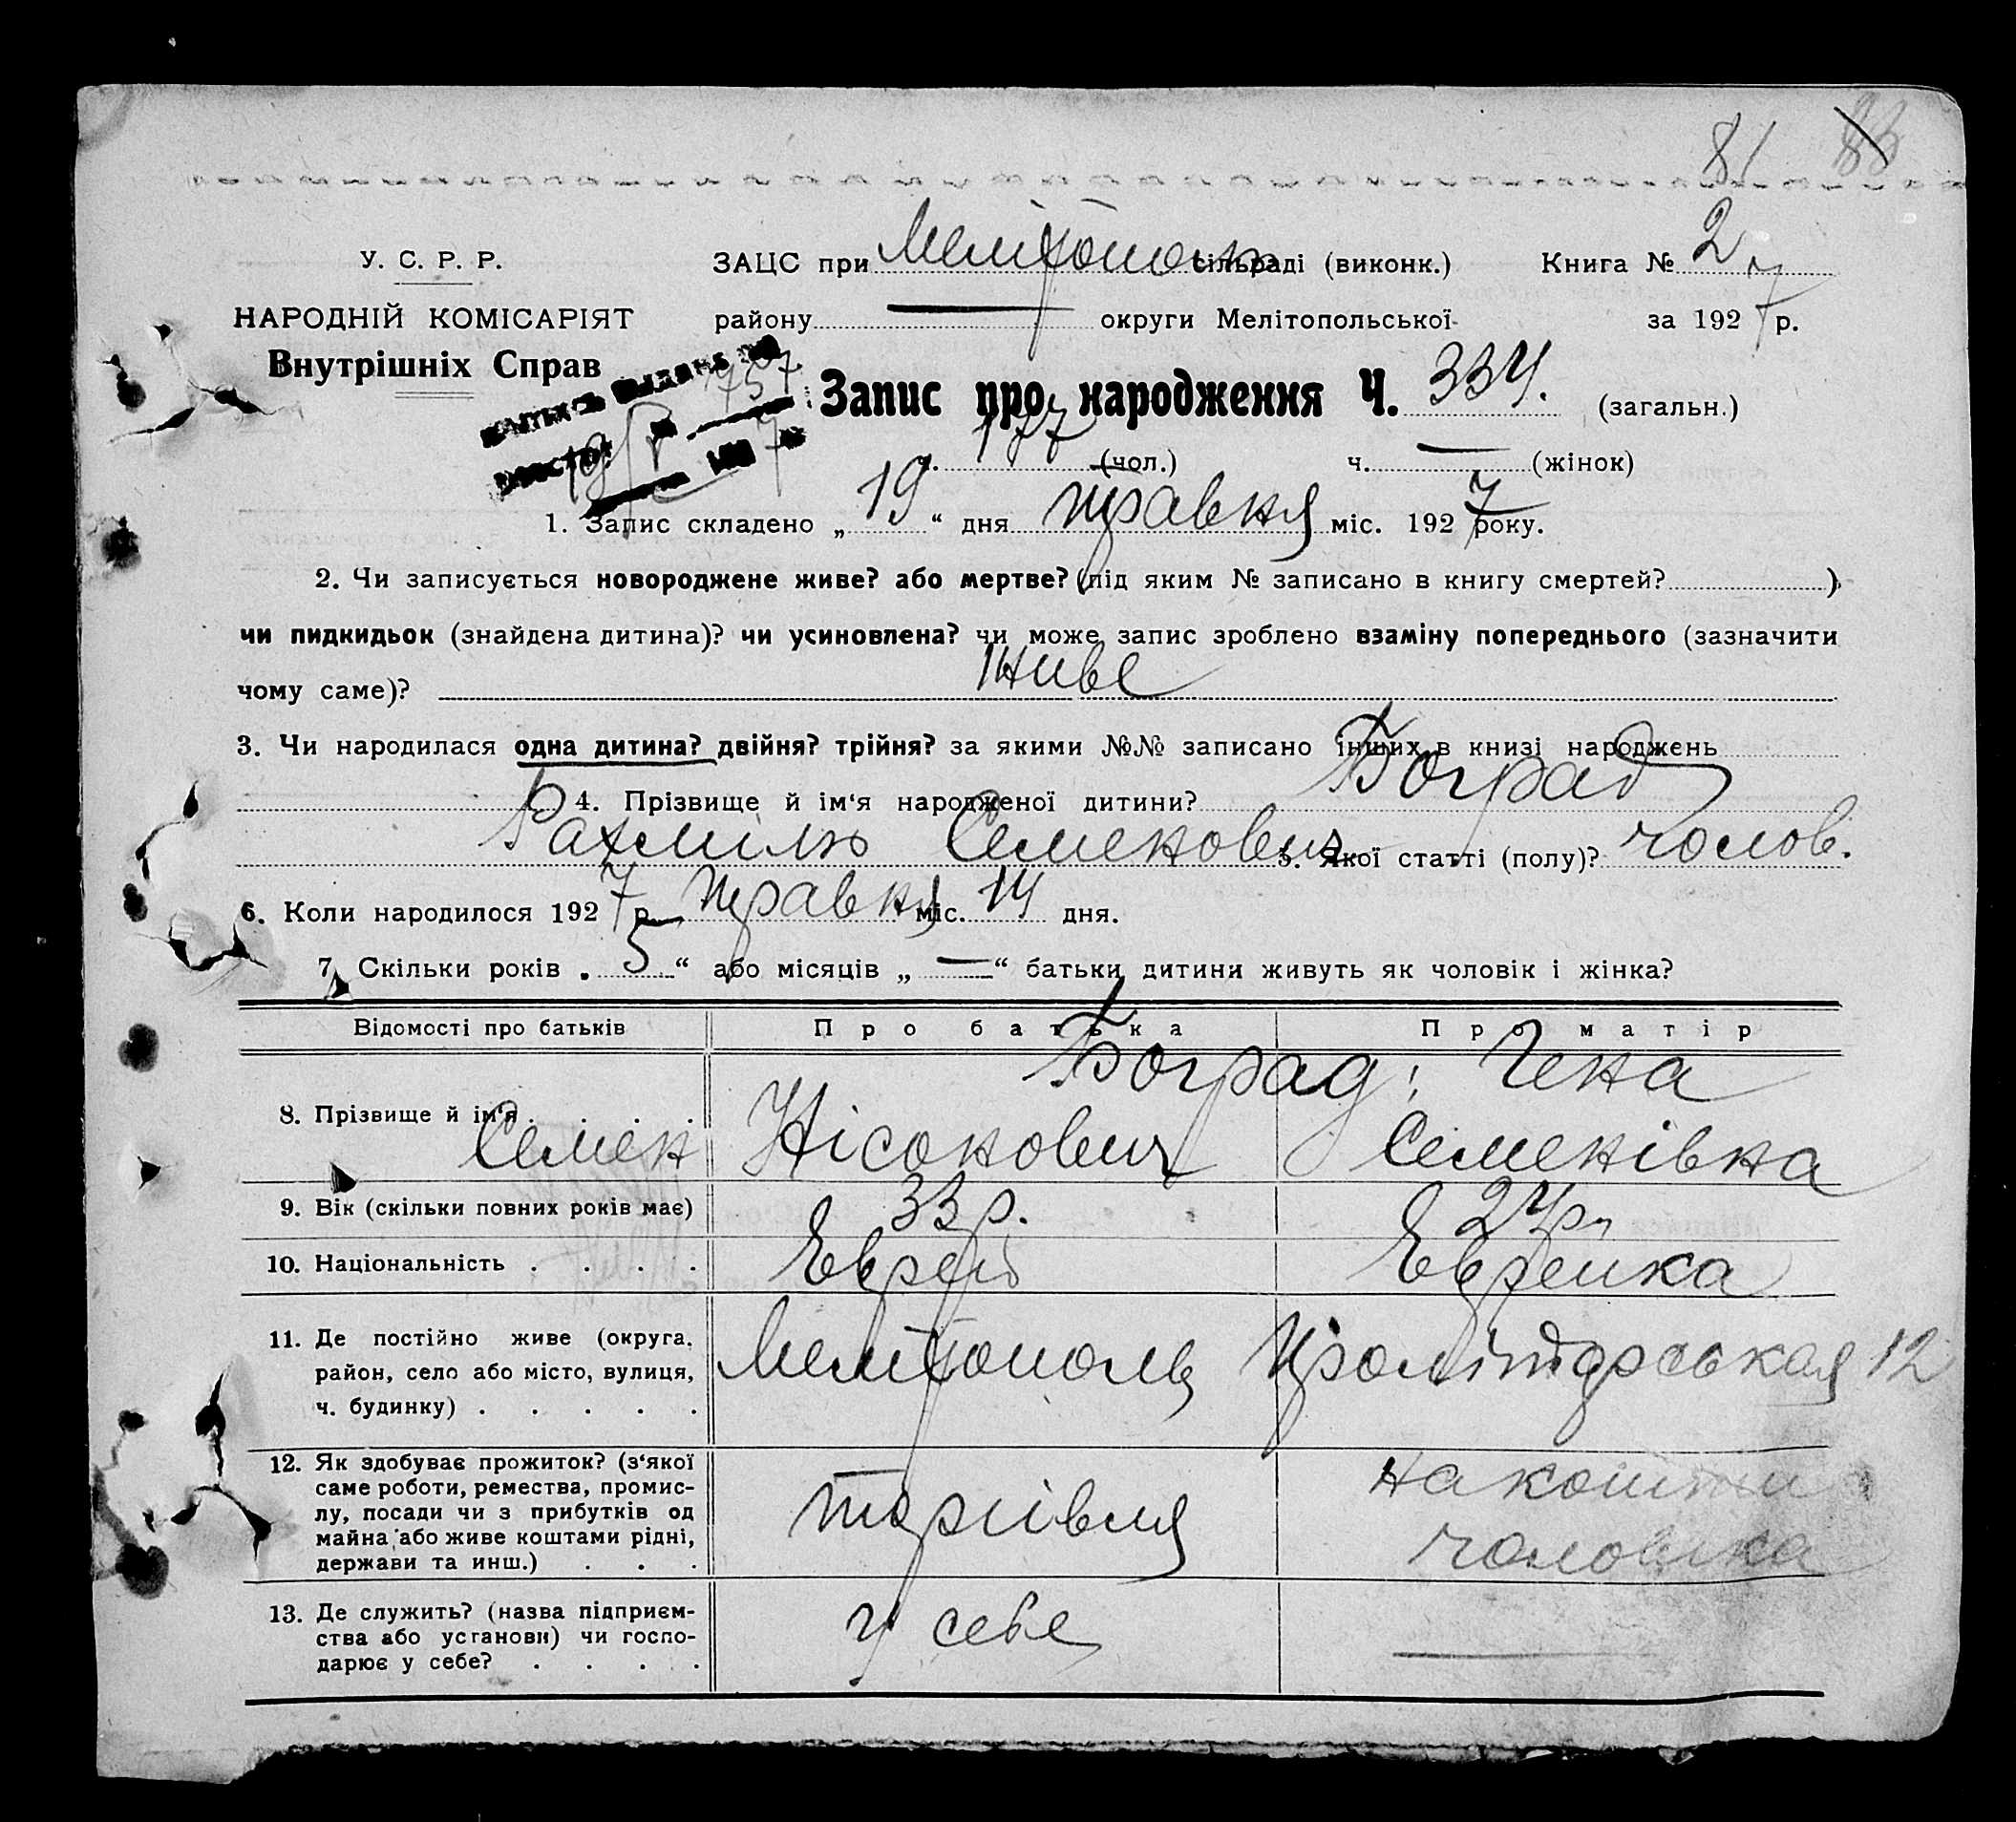 81 83
У. С. Р. Р.
ЗАЦС при Мелітополь сільраді (виконк.) Книга № 2
НАРОДНІЙ КОМІСАРІЯТ району — округи Мелітопольської за 1927 р.
Внутрішніх Справ
757
19/V 7
Запис про народження Ч. 334. (загальн.)
ч. 177 (чол.) ч. — (жінок)
1. Запис складено „19“ дня травня міс. 1927 року.
2. Чи записується новороджене живе? або мертве? (під яким № записано в книгу смертей? )
чи пидкидьок (знайдена дитина)? чи усиновлена? чи може запис зроблено взаміну попереднього (зазначити
чому саме)? Живе
3. Чи народилася одна дитина? двійня? трійня? за якими №№ записано інших в книзі народжень
4. Прізвище й ім‘я народженої дитини? Боград
Рахміль Семенович 5. Якої статті (полу)? чолов.
6. Коли народилося 1927 р. травня міс. 14 дня.
7. Скільки років „5“ або місяців „—“ батьки дитини живуть як чоловік і жінка?
Відомості про батьків Про батька Про матір
Боград: Гена
8. Прізвище й ім‘я . . . .
Семен Нісонович Семенівна
9. Вік (скільки повних років має) 33 р. 24 р.
10. Національність . . . . Еврей Еврейка
11. Де постійно живе (округа,
район, село або місто, вулиця, Мелітополь Пролітарськая 12
ч. будинку) . . . . .
12. Як здобуває прожиток? (з‘якої
саме роботи, ремества, промис-
лу, посади чи з прибутків од
майна або живе коштами рідні,
держави та инш.) . . .
торгівля на кошти
чоловіка
13. Де служить? (назва підприєм-
ства або установи) чи госпо-
дарює у себе? . . . .
у себе —